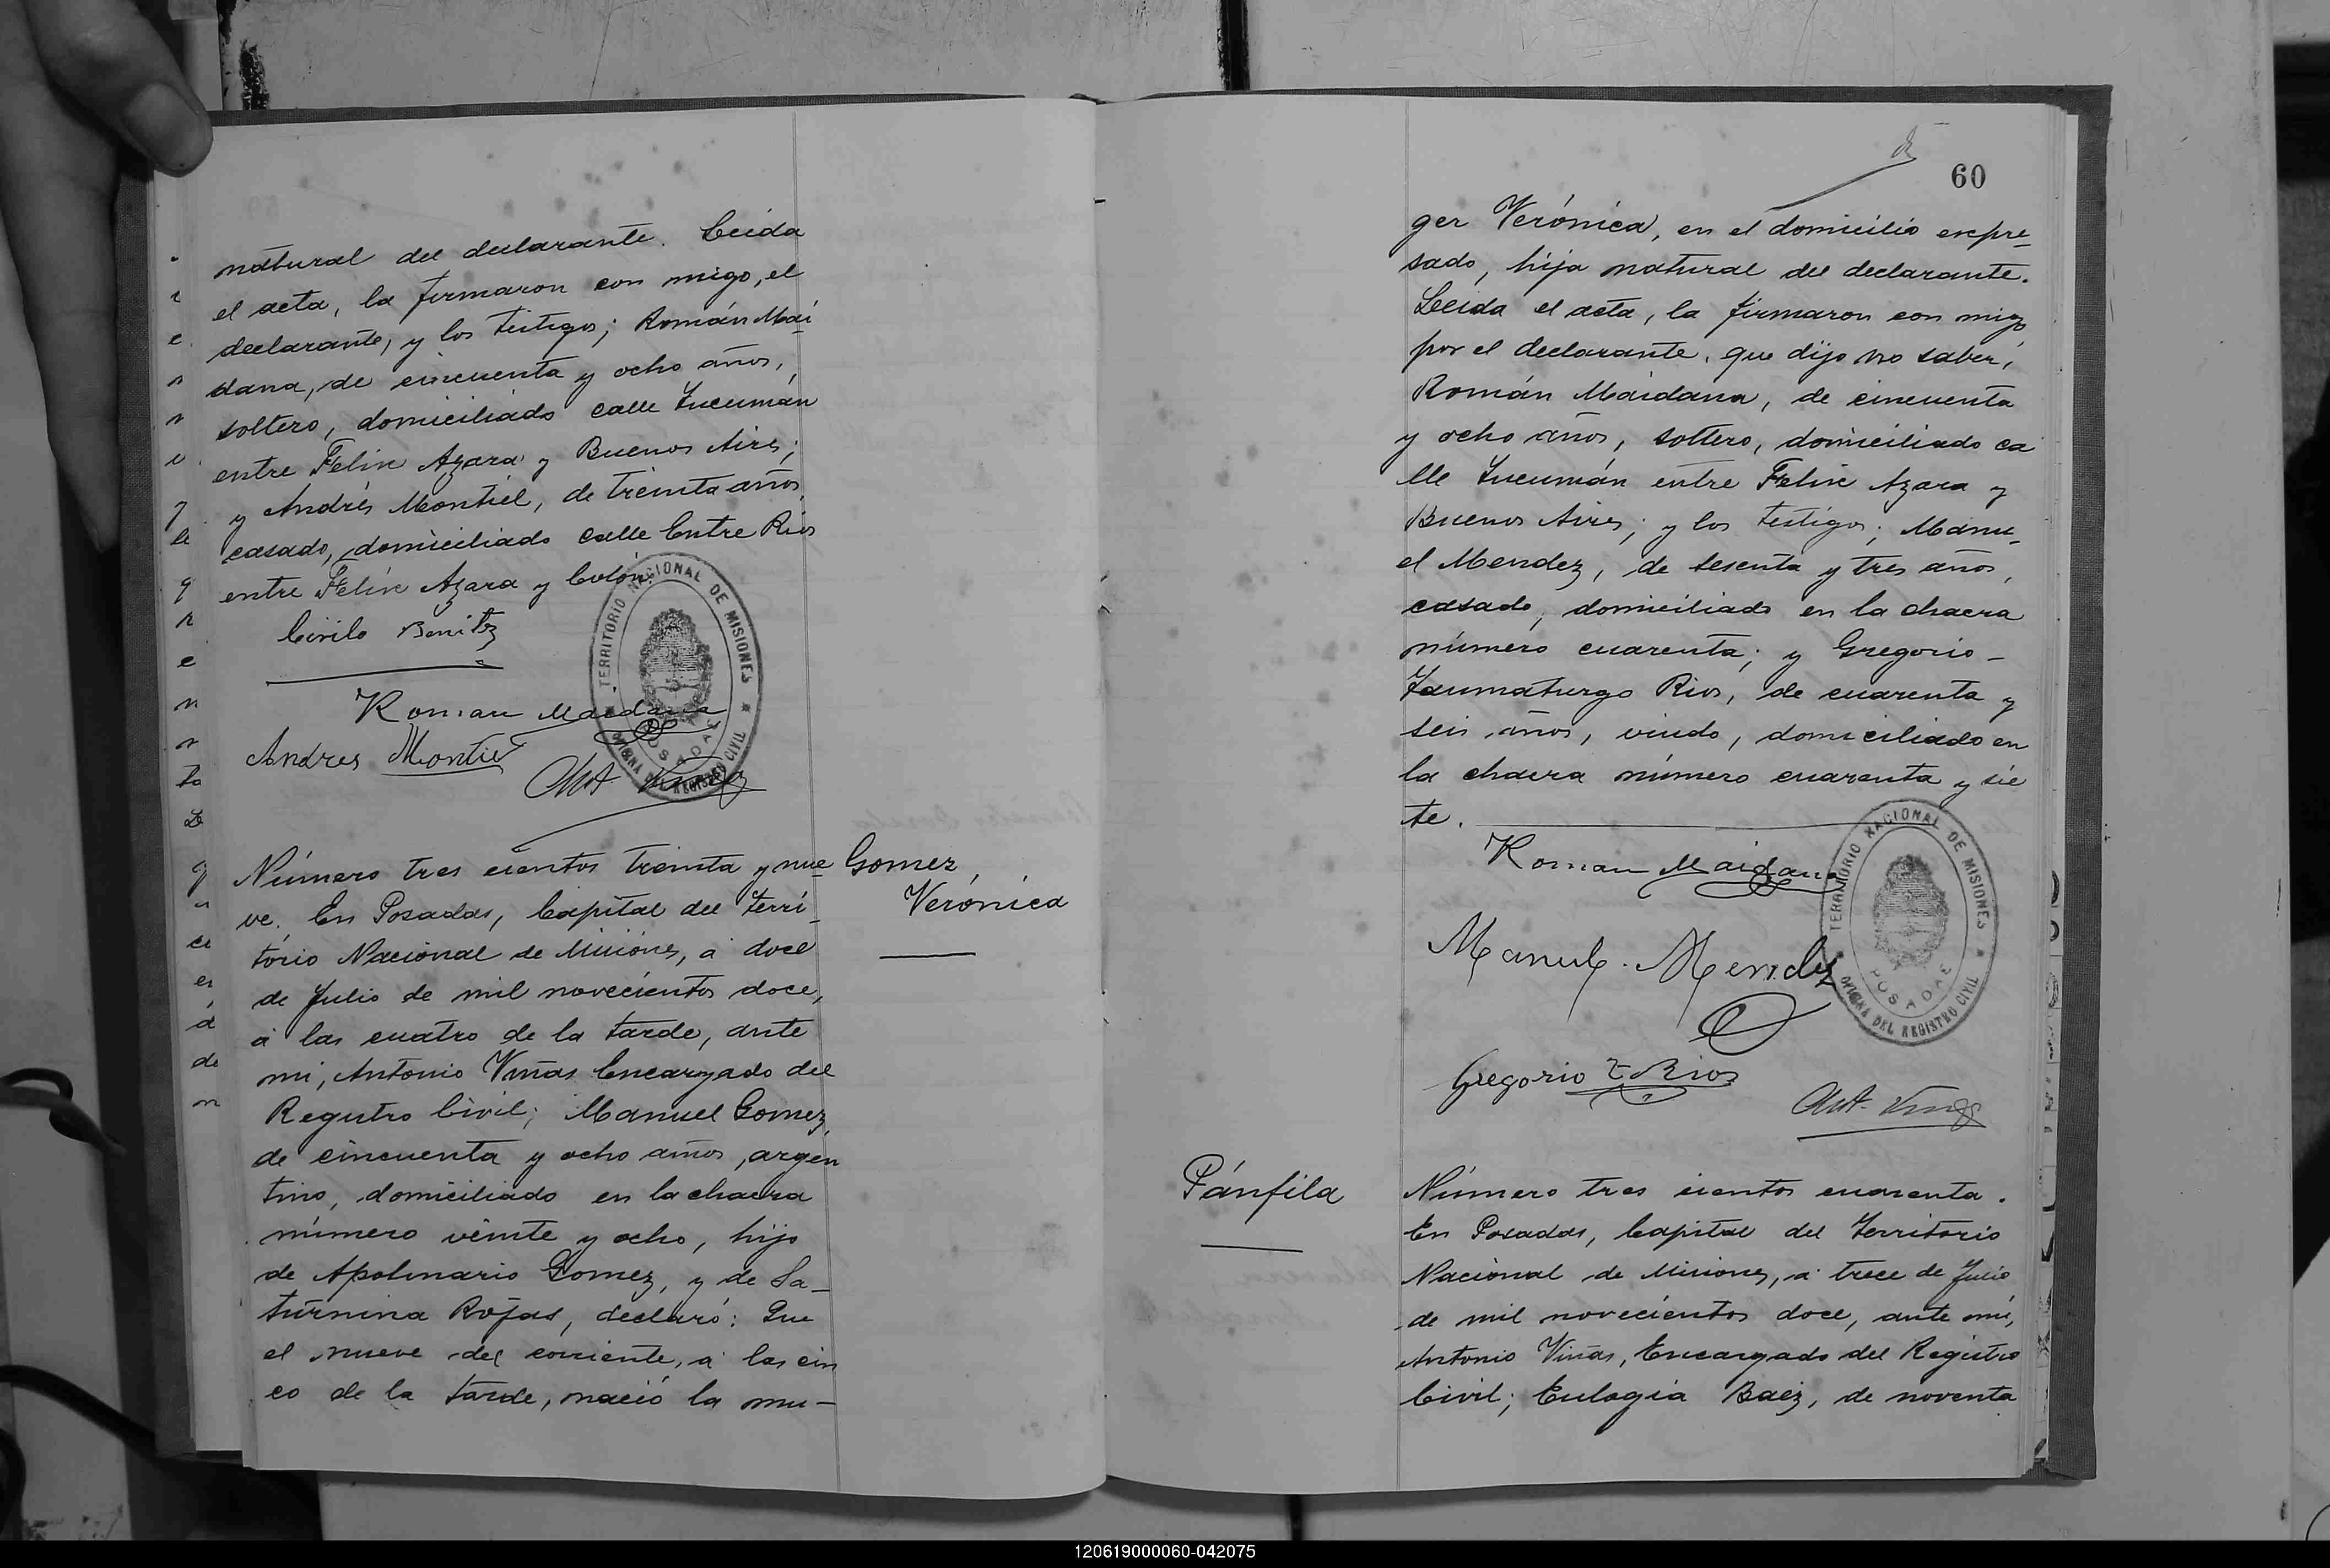 natural del declarante. Leida
el acta, la firmaron con migo, el
declarante, y los testigos; Román Mai
dana, de cincuenta y ocho años,
soltero, domiciliado calle Tucumán
entre Felix Azara y Buenos Aires;
y Andrés Montiel, de treinta años,
casado, domiciliado calle Entre Rios
entre Felix Azara y Colón.
Cirilo Benitez
Roman Maidana
Andres Montiel
Ant. Viñas
TERRITORIO NACIONAL DE MISIONES
POSADAS
OFICINA DEL REGISTRO CIVIL
Gomez,
Verónica
Número tres cientos treinta y nue
ve. En Posadas, Capital del Terri-
torio Nacional de Misiones, á doce
de Julio de mil novecientos doce,
á las cuatro de la tarde, ante
mi, Antonio Viñas Encargado del
Registro Civil; Manuel Gomez,
de cincuenta y ocho años, argen
tino, domiciliado en la chacra
número veinte y ocho, hijo
de Apolinario Gomez, y de Sa-
turnina Rojas, declaró: Que
el nueve del corriente, á las cin
co de la tarde, nació la mu-
60
ger Verónica, en el domicilio expre-
sado, hija natural del declarante.
Leida el acta, la firmaron con migo
por el declarante, que dijo no saber,
Román Maidana, de cincuenta
y ocho años, soltero, domiciliado ca
lle Tucumán entre Felix Azara y
Buenos Aires; y los testigos; Manu-
el Mendez, de sesenta y tres años,
casado, domiciliado en la chacra
número cuarenta; y Gregorio-
Taumaturgo Rios, de cuarenta y
seis años, viudo, domiciliado en
la chacra número cuarenta y sie
te.
Roman Maidana
Manuel Mendez
Gregorio T. Rios
Ant. Viñas
TERRITORIO NACIONAL DE MISIONES
POSADAS
OFICINA DEL REGISTRO CIVIL
Pánfila
Número tres cientos cuarenta.
En Posadas, Capital del Territorio
Nacional de Misiones, á trece de Julio
de mil novecientos doce, ante mi,
Antonio Viñas, Encargado del Registro
Civil; Eulogia Baez, de noventa
120619000060-042075